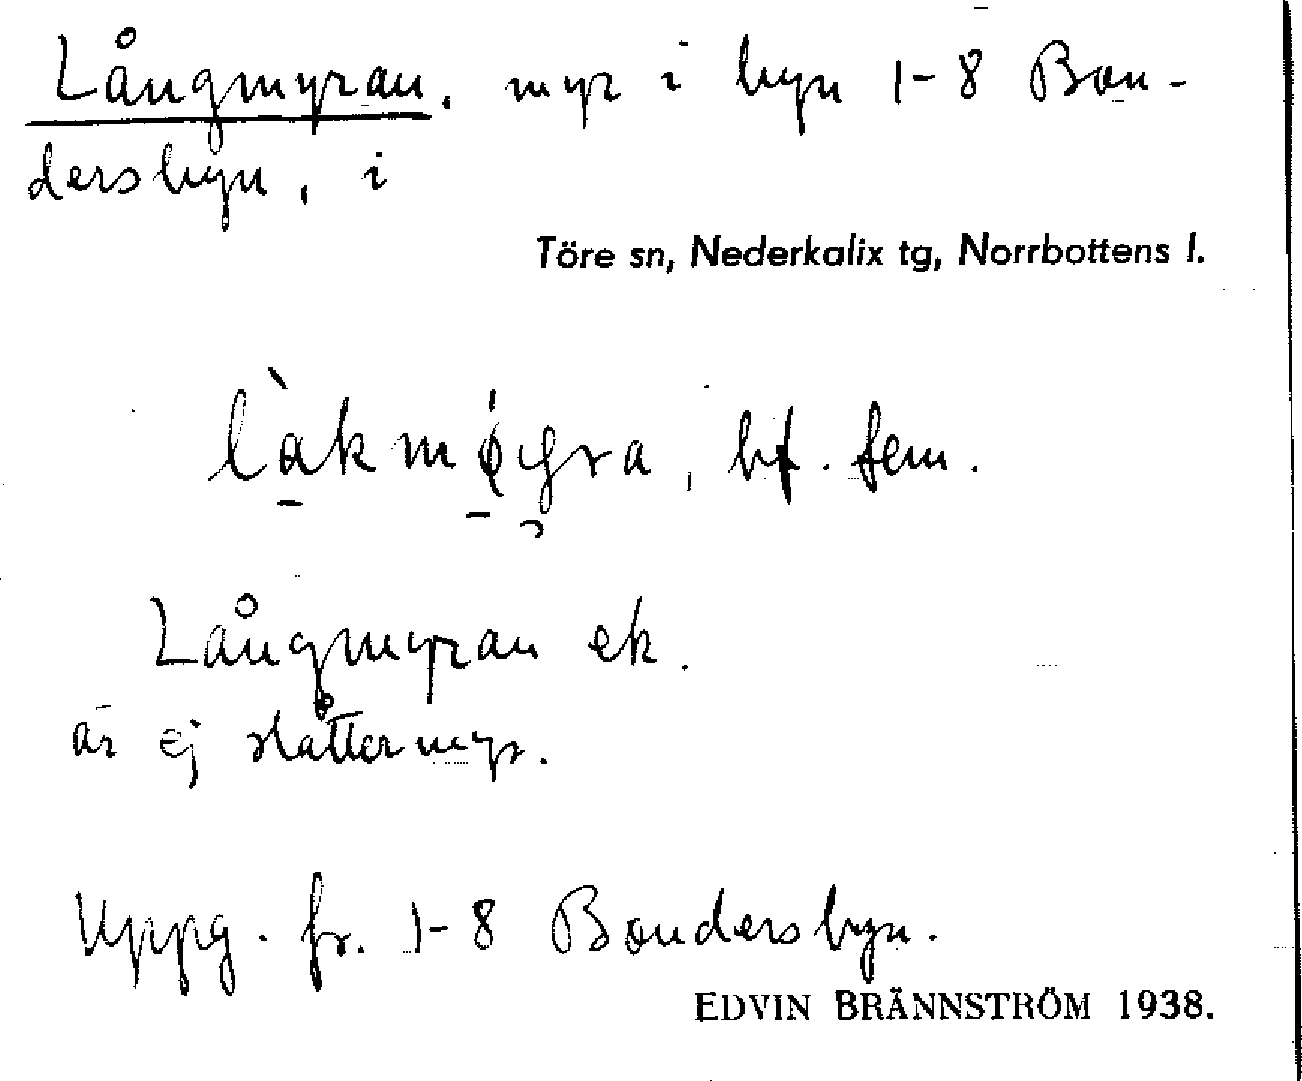 Långmyran, myr i byn 1-8 Bon-
dersbyn, i
Töre sn, Nederkalix tg, Norrbottens l.
bf. fem.
Långmyran ek.
är ej slåttermyr.
Uppg. fr. 1-8 Bondersbyn.
EDVIN BRÄNNSTRÖM 1938.